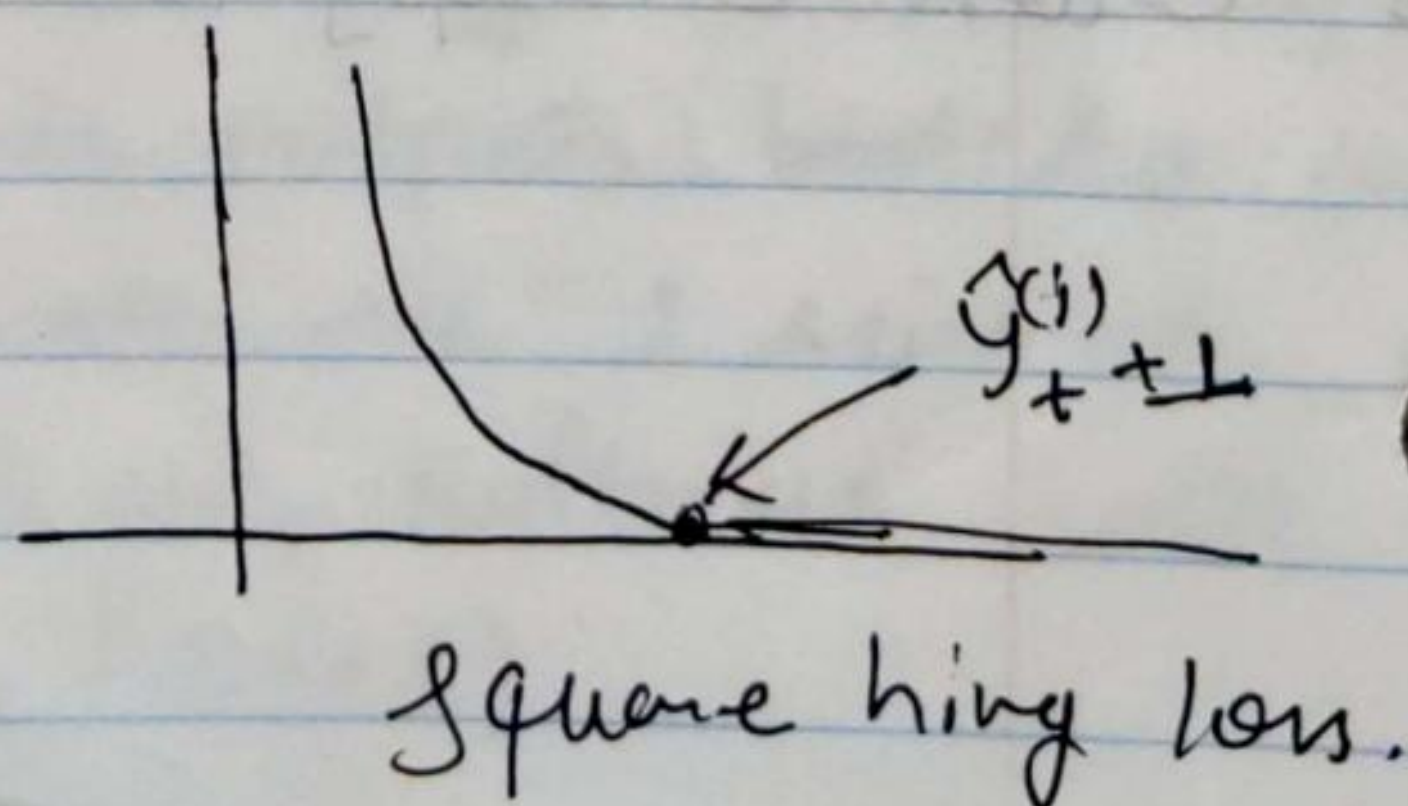 ŷ^(i)_t + 1
Square hing loss.